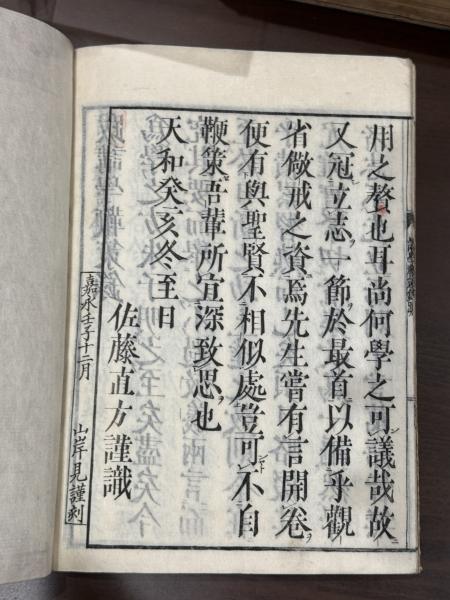 用之贅也耳尚何學之可議哉故
又冠立志一節於最首以備乎觀
省儆戒之資焉先生嘗有言開卷
便有與聖賢不相似處豈可不自
鞭策吾輩所宜深致思也
天和癸亥冬至日
佐藤直方謹識
嘉永壬子十二月
山岸見謹刻